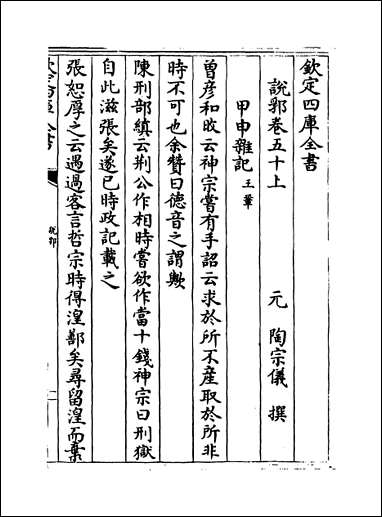 欽定四庫全書
說郛卷五十上
元 陶宗儀 撰
甲申雜記 王鞏
曾彥和旼云神宗嘗有手詔云求於所不産取於所非
時不可也余贊曰德音之謂歟
陳刑部縝云荆公作相時嘗欲作當十錢神宗曰刑獄
自此滋張矣遂已時政記載之
張恕厚之云遇過客言哲宗時得湟鄯矣尋留湟而棄
說郛